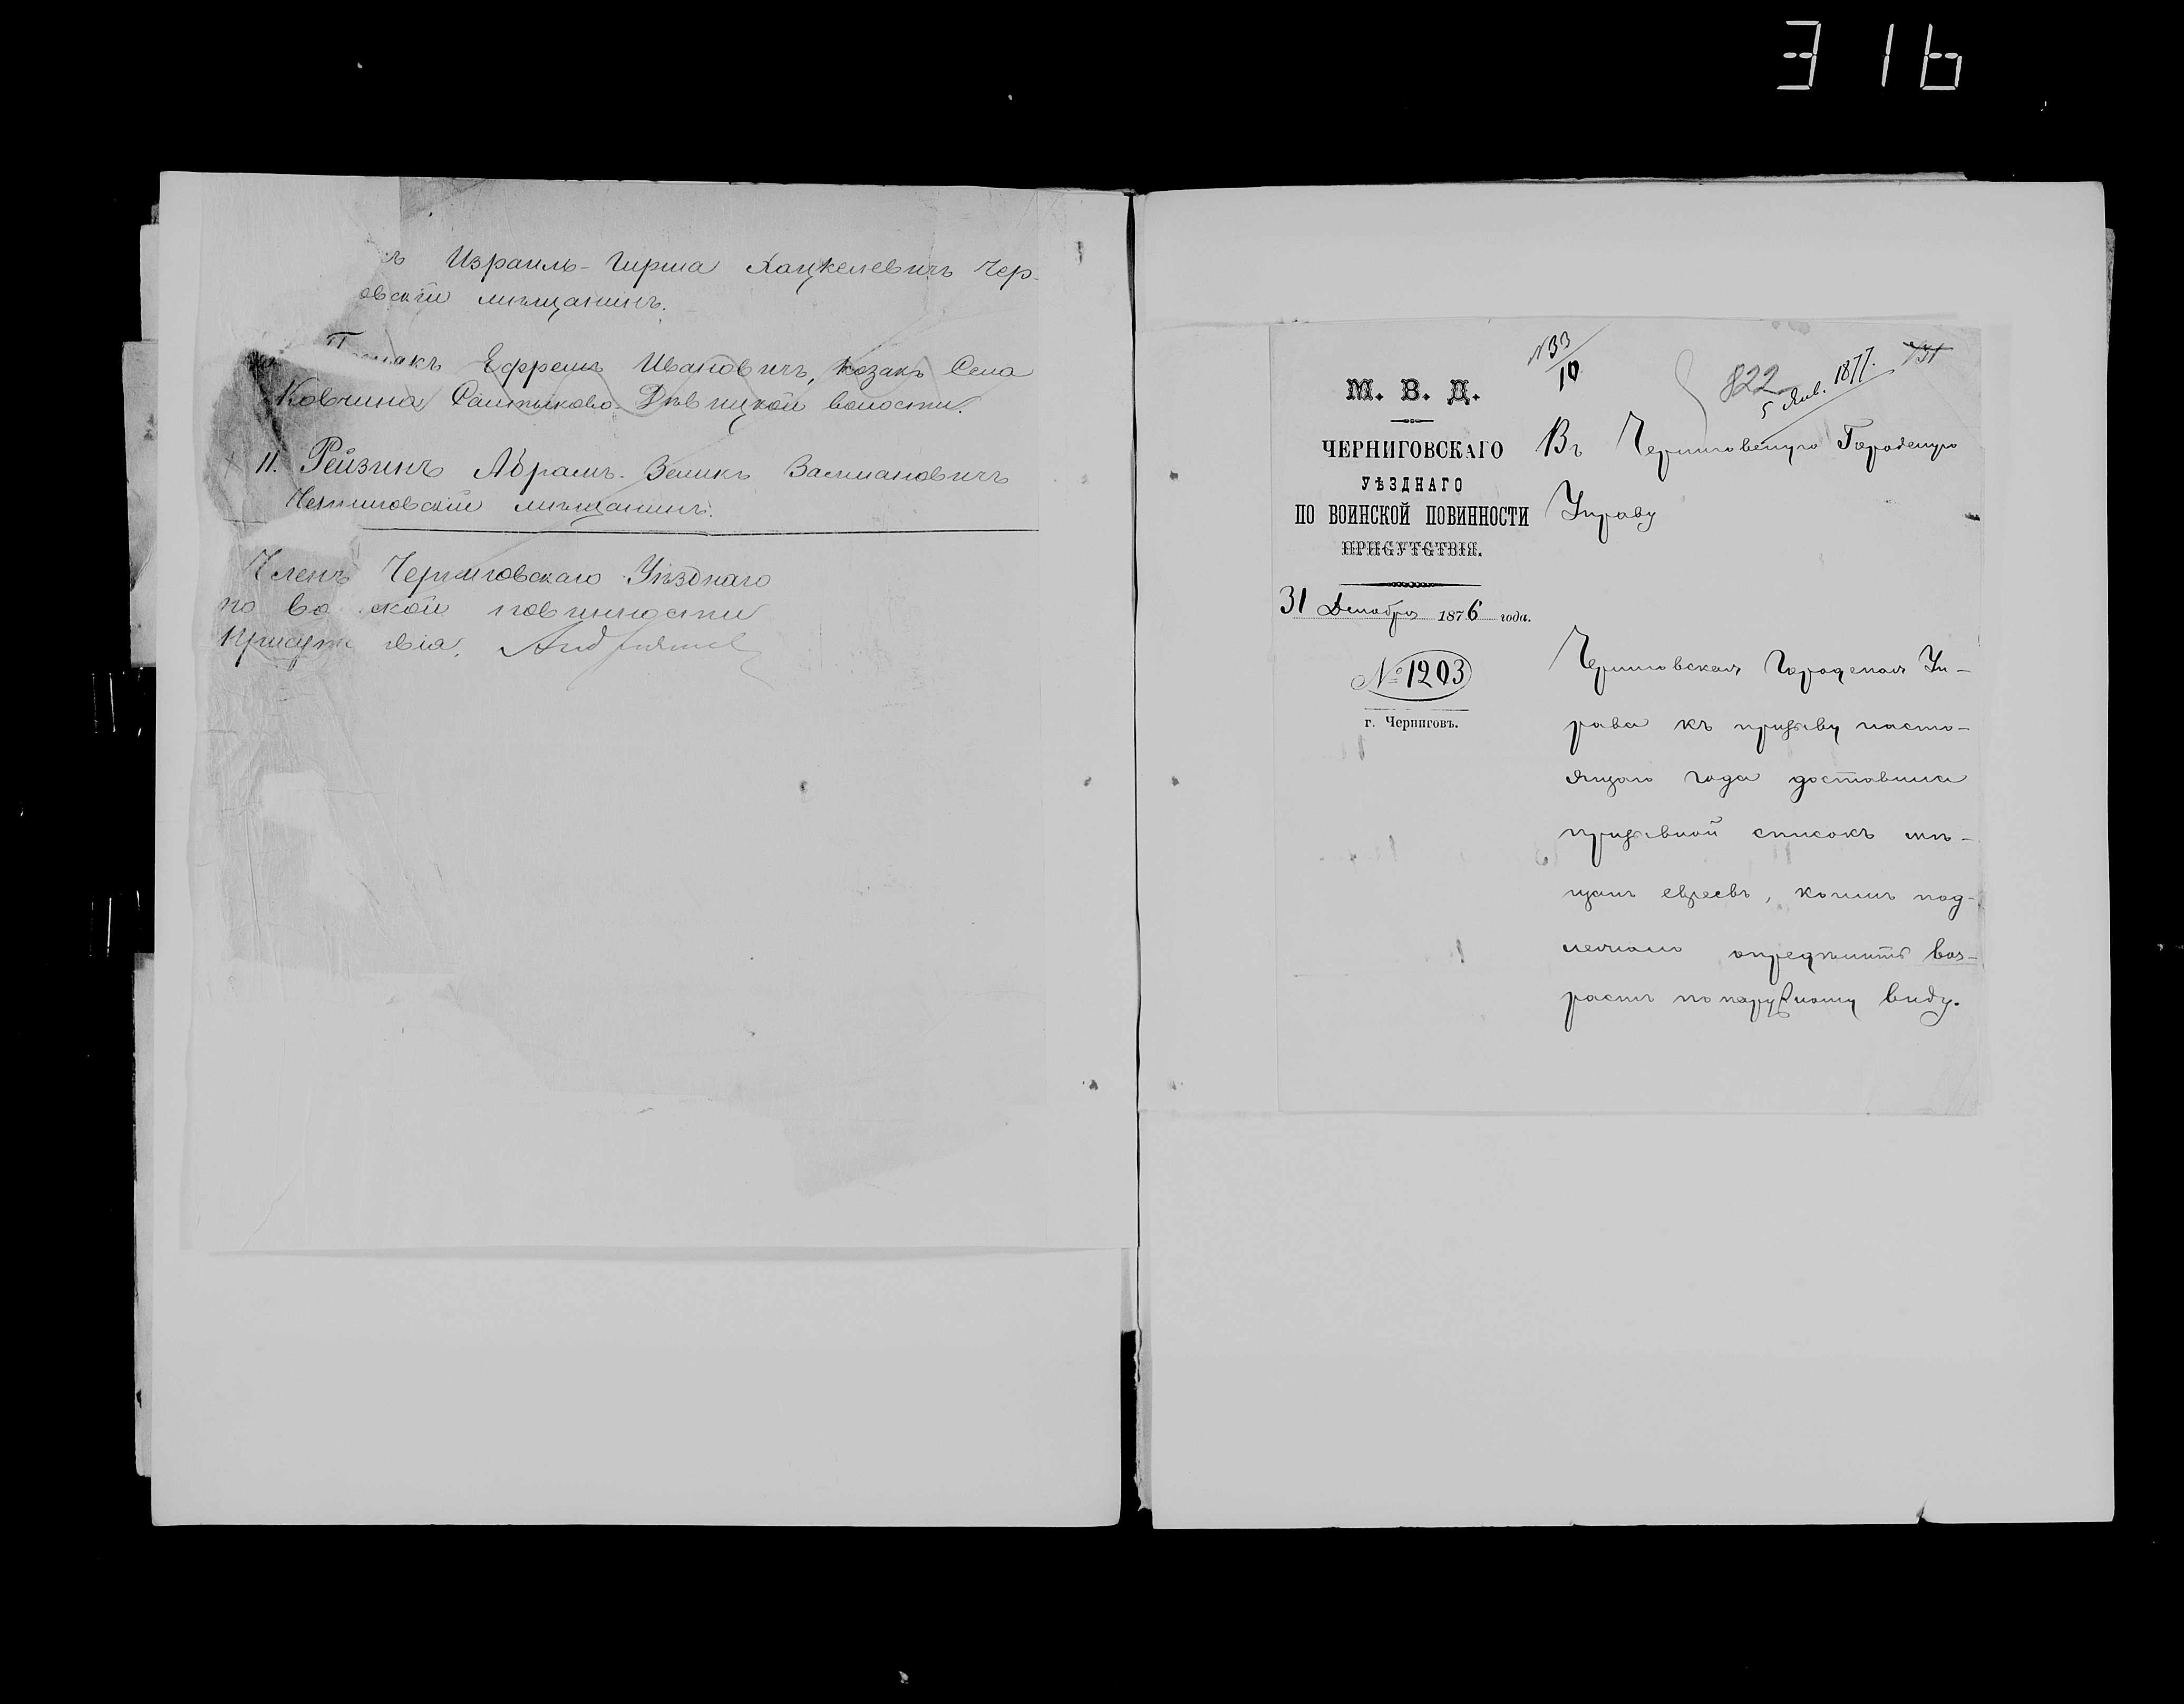 316
ъ Израиль-Гирша Хацкелевичъ Чер-
овскiй мѣщанинъ.
Ефремъ Ивановичъ, козакъ Села
Ковчина Салтыково-Дѣвицкой волости.
11. Рейзинъ Абрамъ-Зеликъ Залмановичъ
Черниговскiй мѣщанинъ.
Членъ Черниговскаго Уѣзднаго
по во ской повинности
Присутс вiя.
№33
10
822
5 Янв. 1877.
М. В. Д.
ЧЕРНИГОВСКАГО
УѢЗДНАГО
ПО ВОИНСКОЙ ПОВИННОСТИ
ПРИСУТСТВІЯ.
31 Декабря 1876 года.
№ 1203
г. Черниговъ.
Въ Черниговскую Городскую
Управу
Черниговская Городская Уп-
рава къ призыву насто-
ящаго года доставила
призывной списокъ мѣ-
щанъ евреевъ, коимъ под-
лежало опредѣлить воз-
растъ по наружному виду.